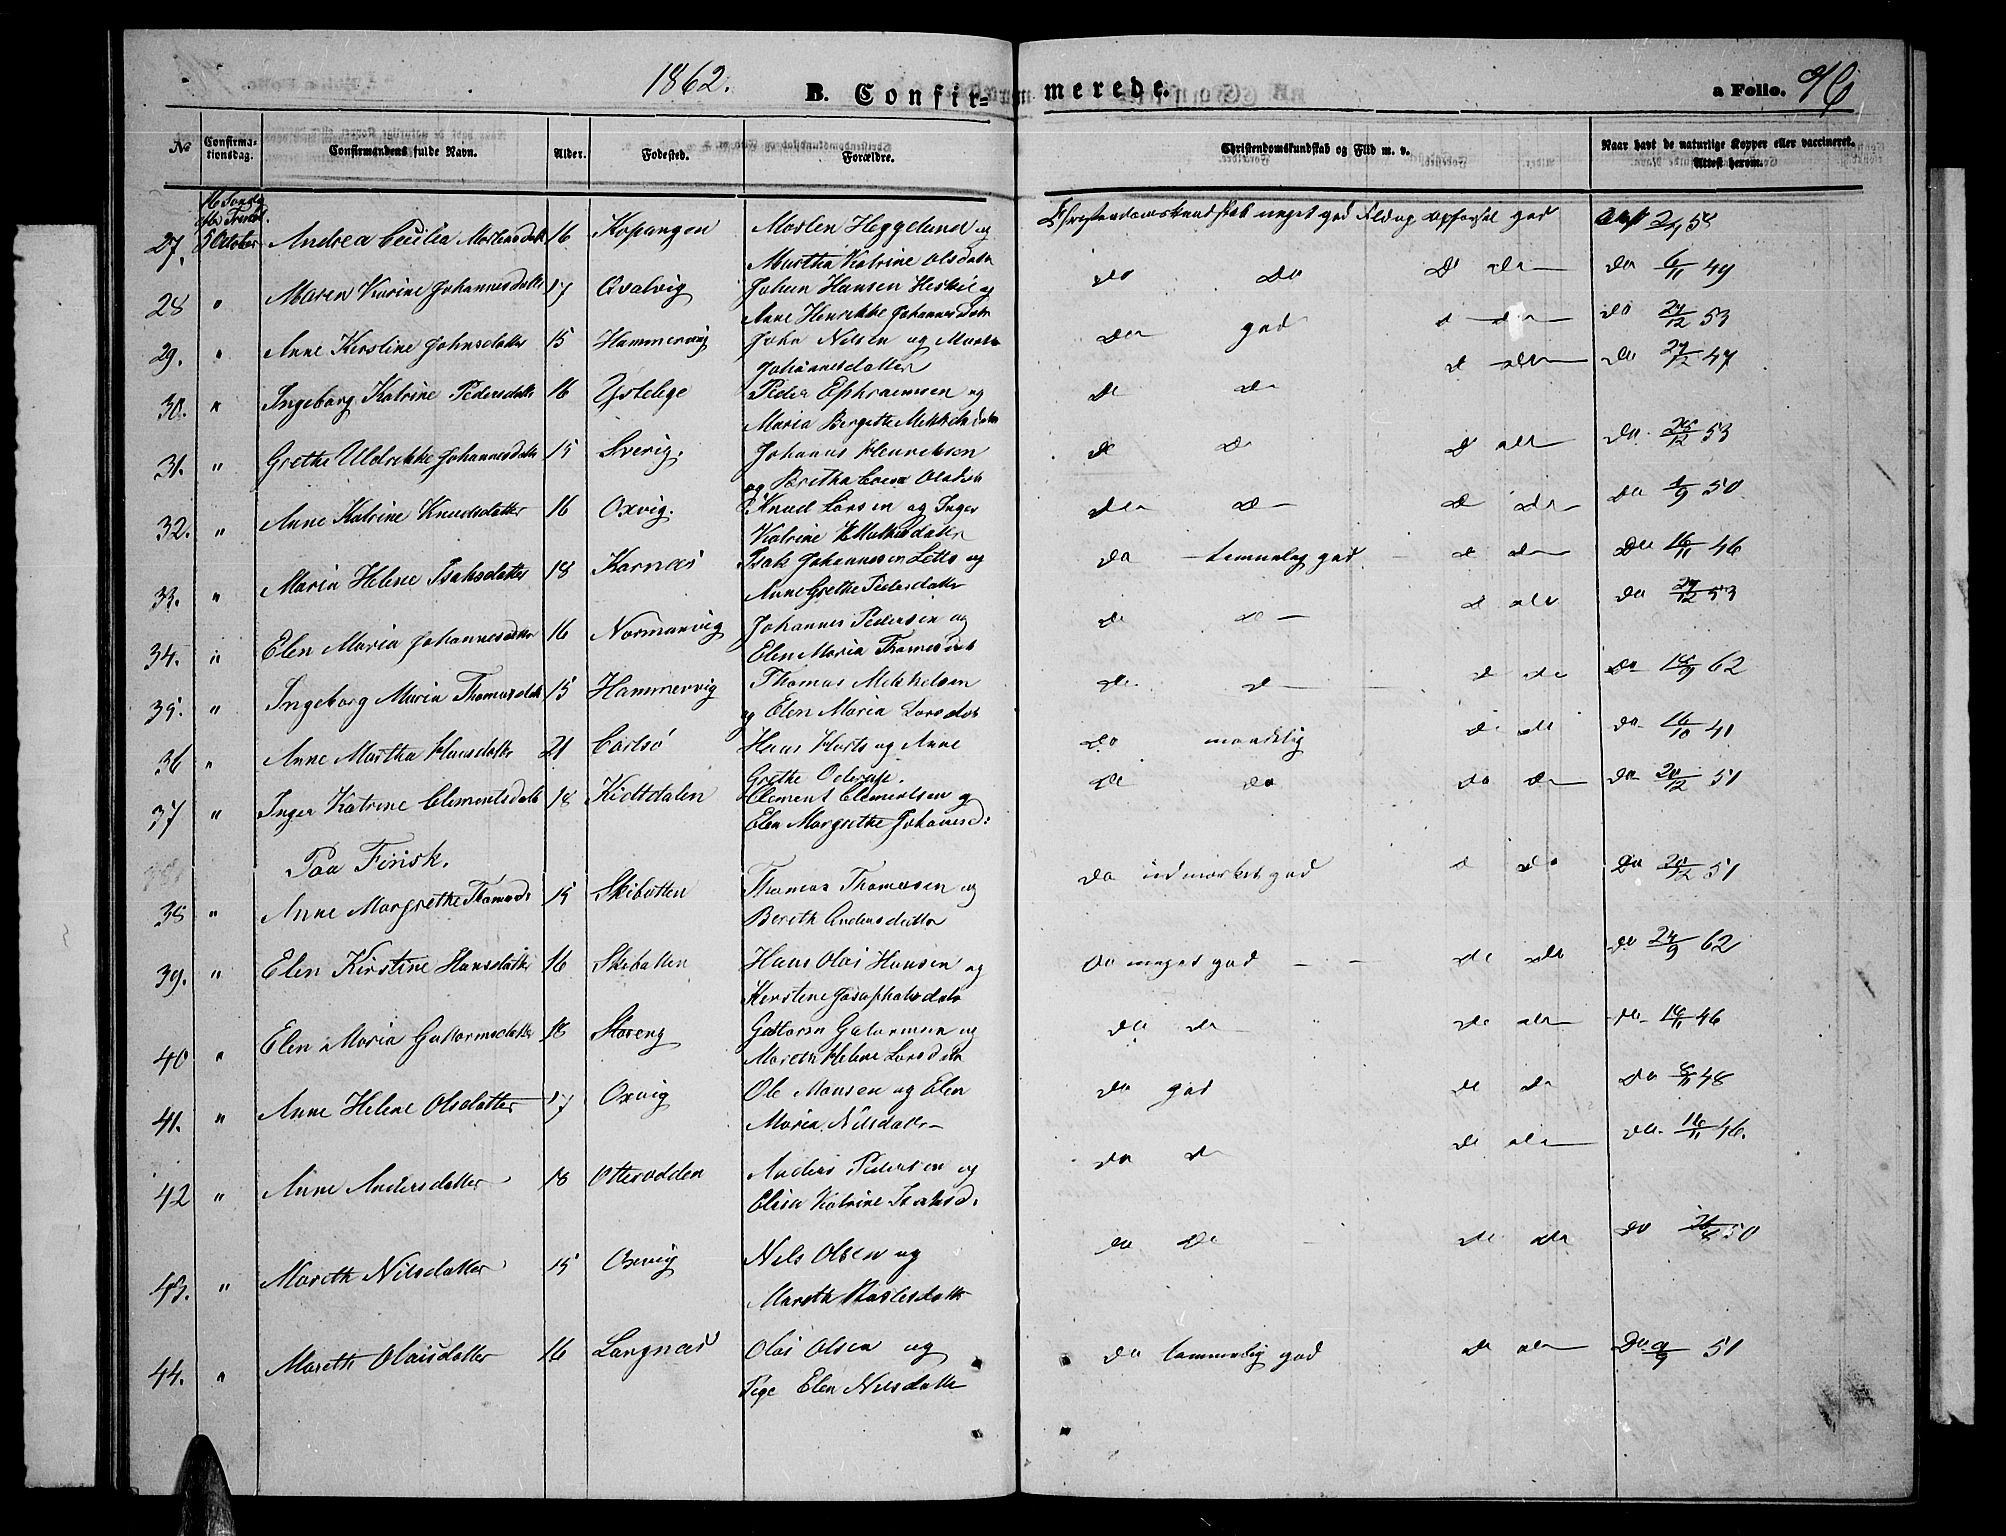 1862.
B. Confir- merede. a Folio. 96
No Confirma- tionsdag. Confirmandens fulde Navn. Alder. Fødested. Forældre. Christendomskundskab og Flid m. v. Naar havt de naturlige Kopper eller vaccineret. Attest herom.
16 Sondg
efter Trinit.
27. 5 October Andrea Cecilia Mortensdatt 16 Kopangen Morten Heggelund og Christendomskundskab meget god Flid og Opførsel god 58
Martha Katrine Olsdatr
28 " Maren Karine Johannesdatter 17 Qvalvig Johan Hansen Heskil og do do do do 6/11 49
Anne Henrikke Johannesdatr
29. " Anne Kirstine Johnsdatter 15 Hammervig John Nilsen og Do god Do 27/12 53
Johannesdatter
30. " Ingeborg Katrine Pedersdatter 16 Peder Ephraimsen og Do Do Do 27/12 47
Maria Bergitte
31. " Grethe Uldrikke Johannesdatter 15 Sverig. Johannes Henriksen do do do do Do 26/12 53
og Bretha Olsdatr
32. " Anne Katrine Knudsdatter 16 Oxvig. Knud Larsen og Inger do do do do Do 50
Katrine
33. " Maria Helene Isaksdatter 18 Karnæs Isak Johannesen Lette og Do temmelig god do do Do 16/11 46
Anne Grethe Pedersdatter
34. " Elen Maria Johannesdatter 16 Normanvig Johannes Pedersen og do do do do Do 27/12 53
Elen Maria Thomasdatr
35. " Ingeborg Maria Thomasdatt 15 Hammervig Thomas Mikkelsen do do do do Do 18/9 62
og Elen Maria Larsdatr
36 " Anne Martha Hansdatter 21 Carlsø Hans og Anne do maadelig do do Do 16/10 41
Grethe
37 " Inger Katrine Clementsdatt 18 Kiettdalen Clement Clementsen og do do do do Do 20/12 51
Elen Margrethe Johannesd:
Paa Finsk.
38 " Anne Margrethe Thomasd: 15 Skibotten Thomas Thomasen og Do udmærket god do do Do 20/12 51
Bereth Andersdatter
39. " Elen Kirstine Hansdatter 16 Skibotten Hans Olai Hansen og Do meget god do do Do 24/9 62
Kirstine Josaphatsdatr
40 " Elen Maria Guttormsdatter 18 Storeng Guttorm Guttormsen og Do do do do Do 16/11 46
Mareth Helene Larsdatr
41. " Anne Helene Olsdatter 17 Oxvig Ole Monsen og Elen Do god do do Do 8/11 48
Maria Nilsdatter
42 " Anne Andersdatter 18 Otterodden Anders Pedersen og Do do do do Do 16/11 46.
Elisa Katrine Isaksd:
43. " Mareth Nilsdatter 15 Oxvig Nils Olsen og do do do do Do 50
Mareth
44. " Mareth Olaisdatter 16 Langnæs Olai Olsen og do temmelig god do do Do 9/9 51
Pige Elen Nilsdatter